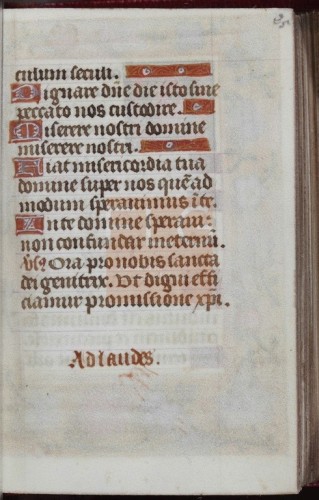 culum seculi.
Dignare dñe die isto sine
peccato nos custodire.
Miserere nostri domine
miserere nostri.
Fiat misericordia tua
domine super nos quẽad
modum sperauimus ĩ te.
In te domine speraui:
non confundar ineternũ.
Vs̃ Ora pro nobis sancta
dei genitrix. Vt digni effi
ciamur promissione xp̃i.
Ad laudes.